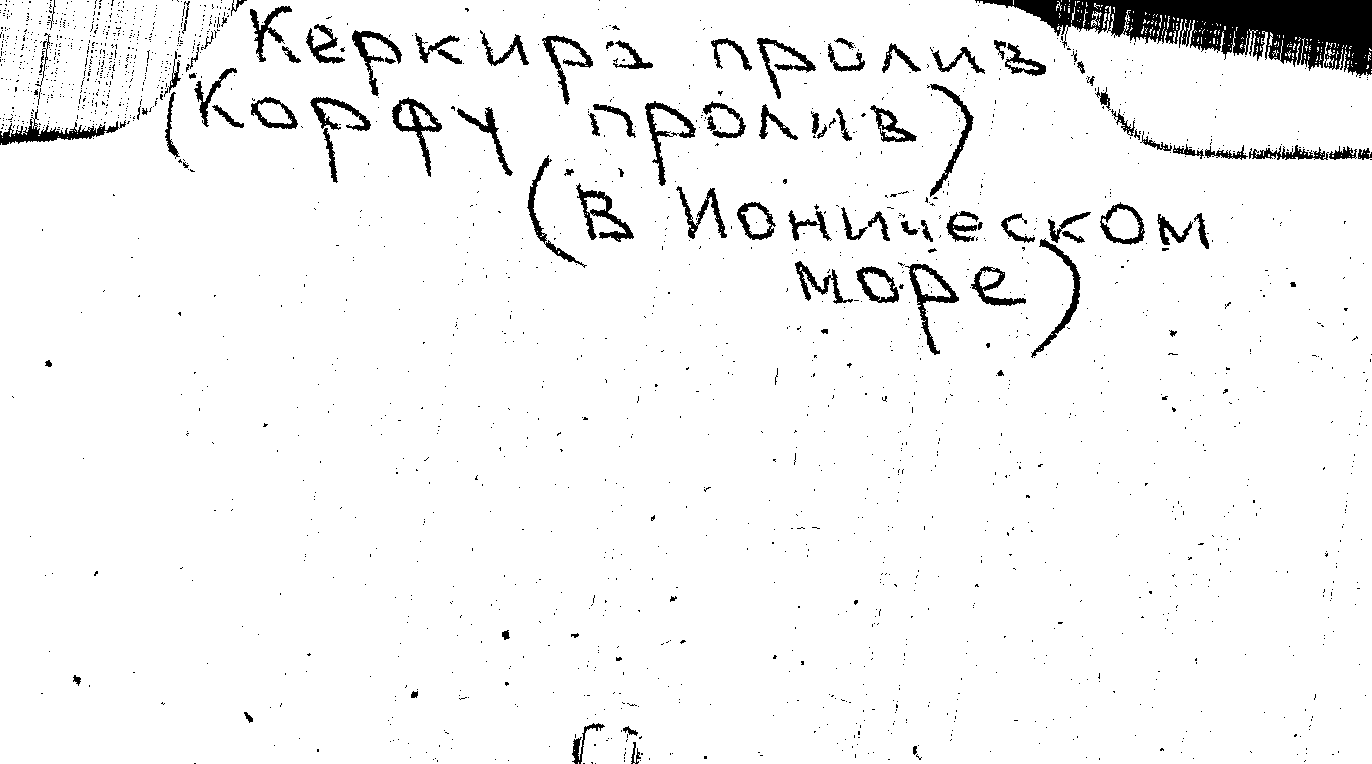 Керкира пролив
(Корфу пролив)
(В Ионическом
море)